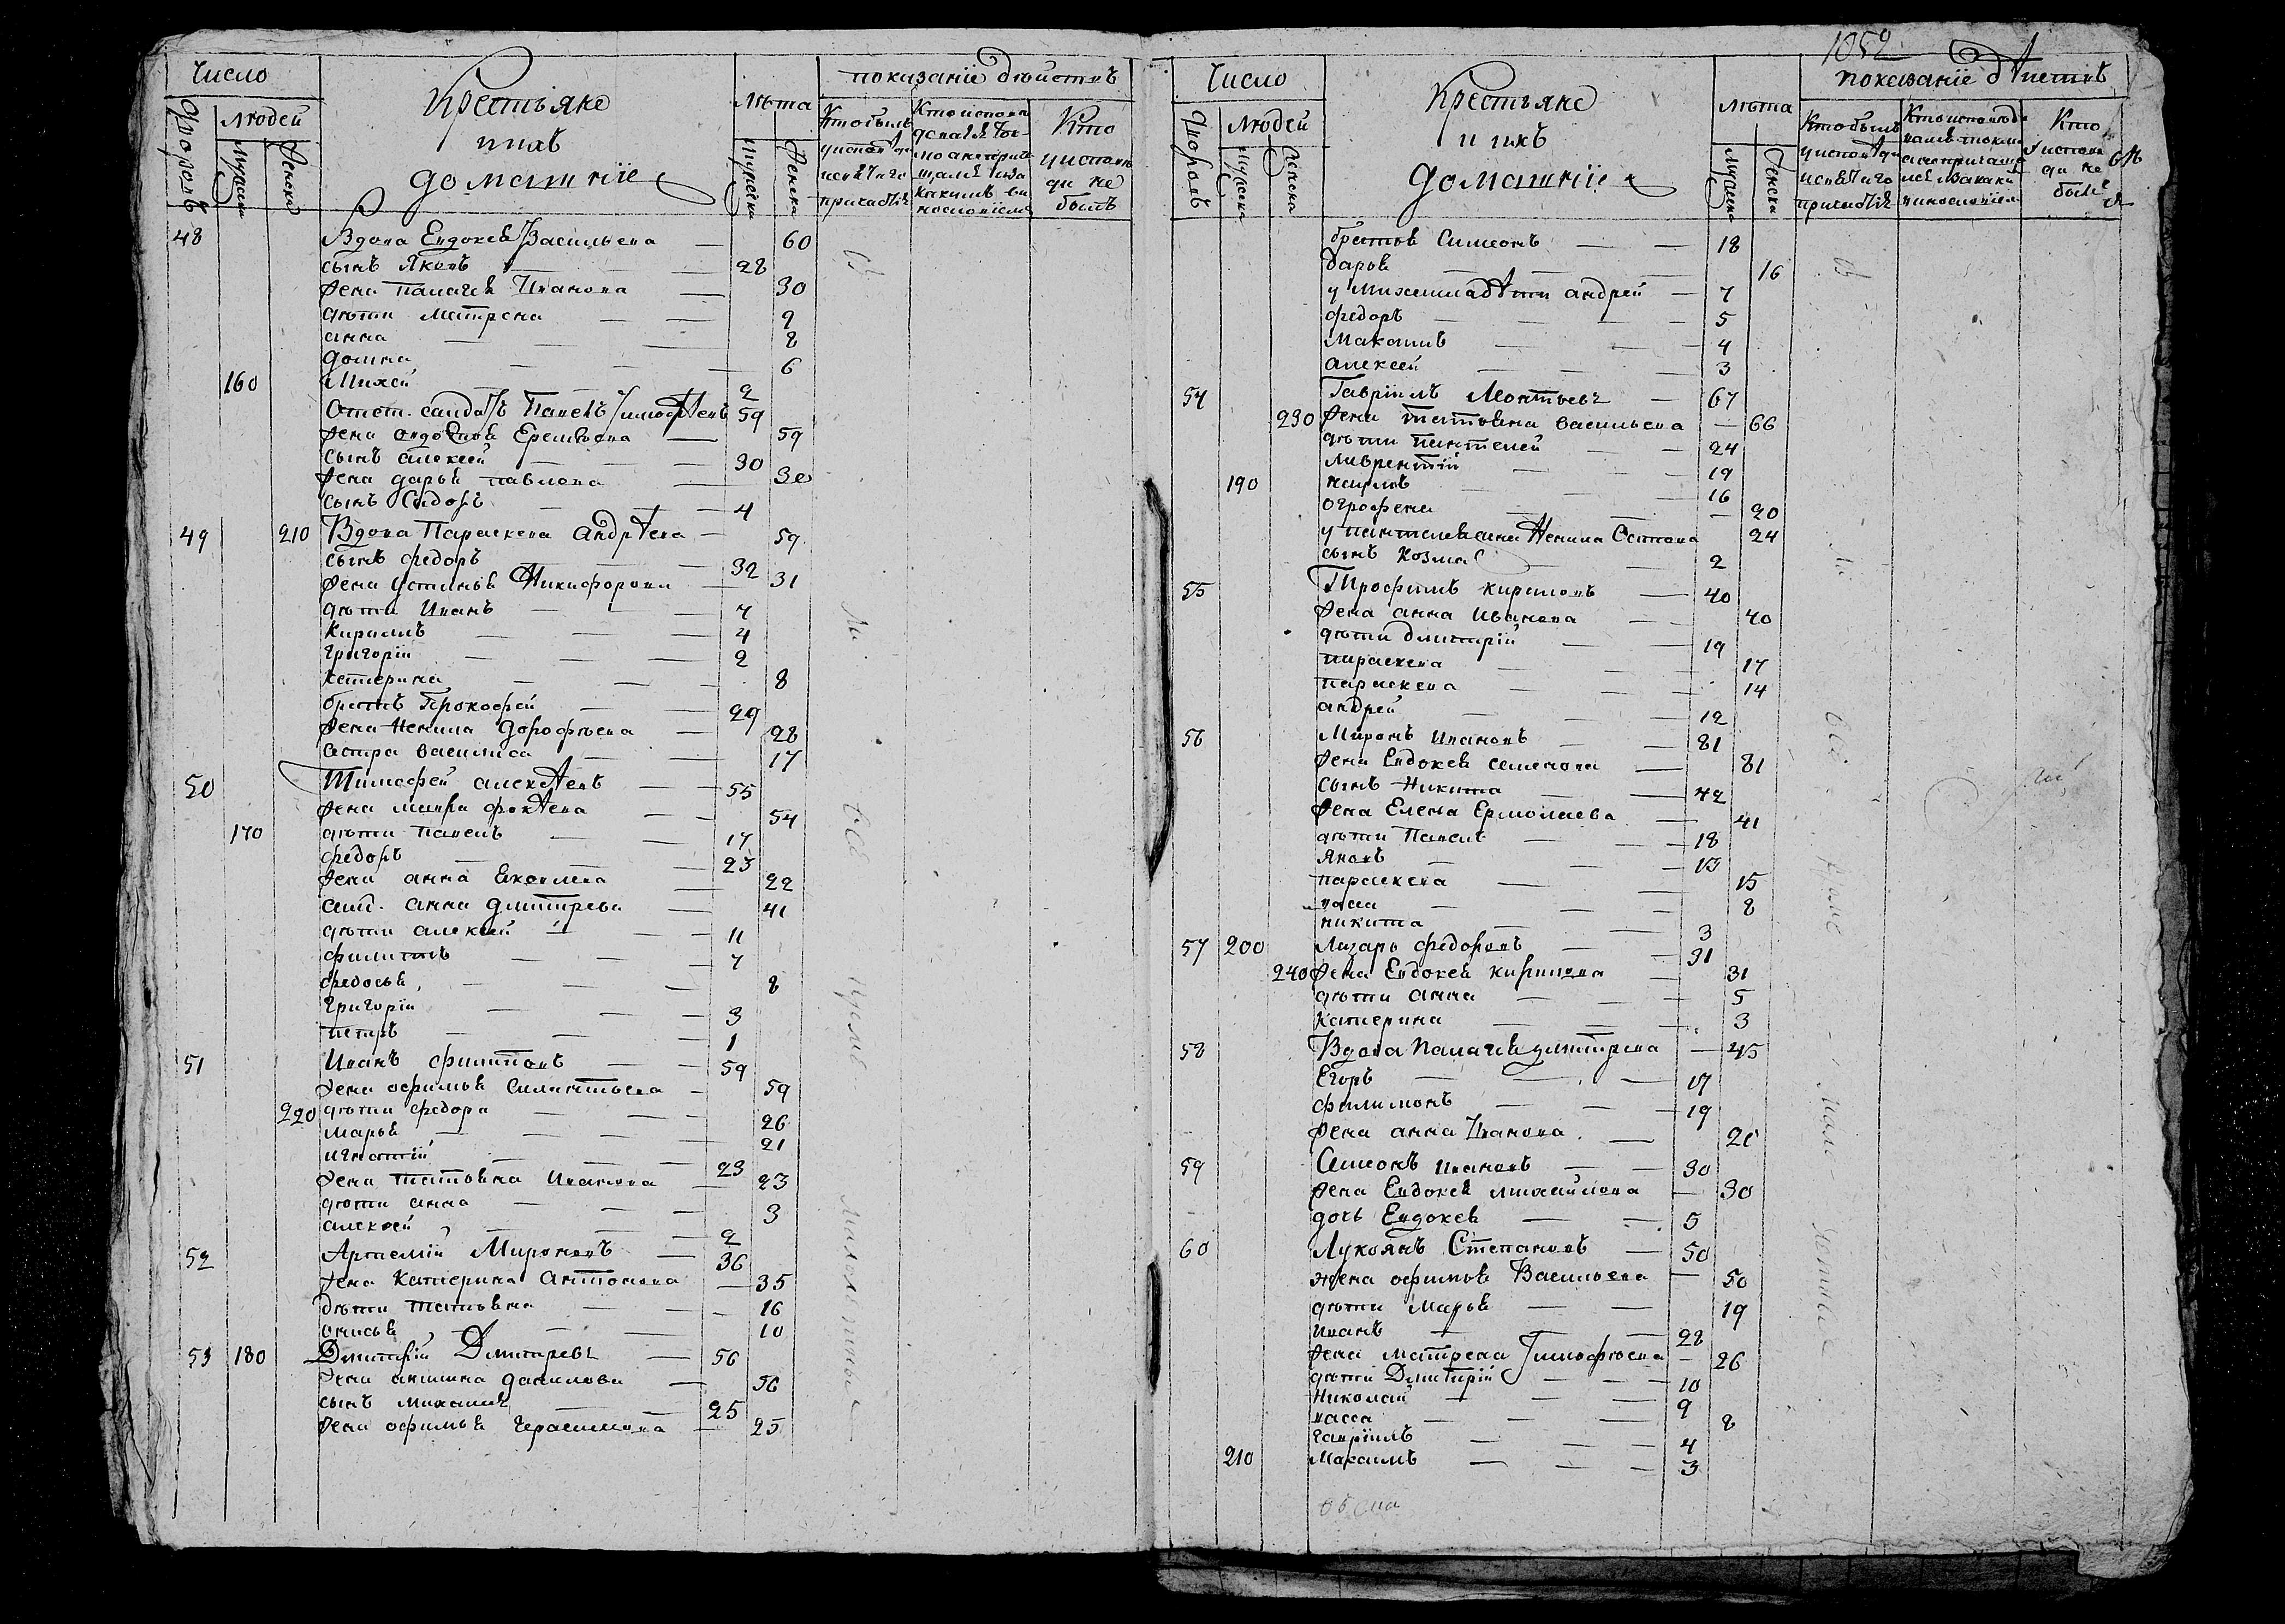 Число
Крестьяне
и ихъ
домашніе
Лѣта
показаніе дѣйствъ
Дворовъ
Людей
Мужеска
Женска
Мужеска
Женска
Кто былъ
у исповѣди
и с‹вята›го
причастія
Кто исповѣ
дался ток-
мо а не прича
щался и за
какимъ ви
нословіемъ
Кто
у исповѣ
ди не
былъ
48 Вдова Евдокея Васильева — 60
сынъ Яковъ — 28
жена Палагея Иванова — 30
дѣти Матрена — 9
анна — 8
домна — 6
160 Михей — 2
Отст. салдатъ Павелъ Тимофѣевъ 59
жена Еремѣева — 59
сынъ алексей — 30
жена дарья павлова — 30
сынъ Сидоръ — 4
49 210 Вдова Параскева андрѣева — 59
сынъ федоръ — 32
жена устинья Никифорова — 31
дѣти Иванъ — 7
Кирилъ — 4
григорій — 2
катерина — 8
братъ Прокофей — 29
жена Ненила дорофѣева — 28
сестра василиса — 17
50 Тимофей алексѣевъ — 55
жена мавра фокѣева — 54
170 дѣти павелъ — 17
федоръ — 23
жена анна Яковлева — 22
салд. анна дмитрева — 41
дѣти алексей — 11
филипъ — 7
федосья — 8
григорій — 3
петръ — 1
51 Иванъ филиповъ — 59
жена афимья Силантьева — 59
220 дѣти федора — 26
марья — 21
игнатій — 23
жена татьяна Иванова — 23
дѣти анна — 3
алексей — 2
52 Артемій Мироновъ — 36
жена Катерина антонова — 35
дѣти татьяна — 16
анисья — 10
53 180 Дмитрій Дмитревъ — 56
жена акилина данилова — 56
сынъ михаила — 25
жена афимья герасимова — 25
всѣ
1052
Число
Крестьяне
и ихъ
домашніе
Лѣта
показаніе дѣйствъ
Дворовъ
Людей
Мужеска
Женска
Мужеска
Женска
Кто былъ
у исповѣди
причастія
Кто
у испове
ди не
былъ
братья Симеонъ — 18
дарья — 16
у михаила дѣти андрей — 7
федоръ — 5
Максимъ — 4
алексей — 3
54 Гавріилъ Леонтьевъ — 67
230 жена татьяна васильева — 66
дѣти пантелей — 24
лаврентій — 19
190 наумъ — 16
огрофена — 20
у пантелея жена Ненила Осипова 24
сынъ козма — 2
55 Трофимъ кириловъ — 40
жена анна иванова — 40
дѣти дмитрій — 19
параскева — 17
параскева — 14
андрей — 12
56 Миронъ ивановъ — 81
жена Евдокея семенова — 81
сынъ Никита — 42
жена Елена Ермолаева — 41
дѣти Павелъ — 18
Яковъ — 13
параскева — 15
васса — 8
никита — 3
57 200 Лазарь федоровъ — 31
240 жена Евдокея кирилова — 31
дѣти анна — 5
Катерина — 3
58 Вдова Палагея дмитрева — 45
Егоръ — 17
филимонъ — 19
жена анна Иванова — 20
59 Симеонъ ивановъ — 30
жена Евдокея михайлова — 30
дочь Евдокея — 5
60 Лукоянъ Степановъ — 50
жена афимья Васильева — 50
дѣти Марья — 19
иванъ — 28
жена матрена Тимофѣева — 26
дѣти Дмитрій — 10
Николай — 9
васса — 8
гавріилъ — 4
210 Максимъ — 3
всѣ